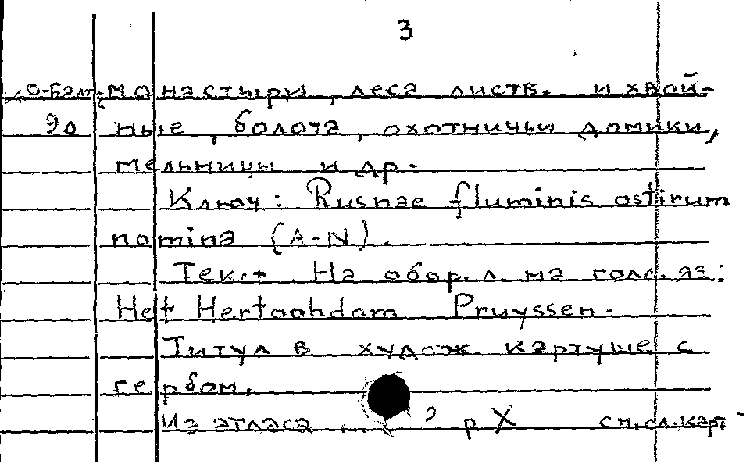 3
монастыри, леса листв. и хвой-
ные, болота, охотничьи домики,
мельницы и др.
Ключ: Rusnae fluminis ostirum
nomina (A-N).
Текст На обор. л. на голл. яз:
Het Hertoohdom Pruyssen.
Титул в худож. картуше с
гербом.
Из атласа ... ? р X см. сл. карт